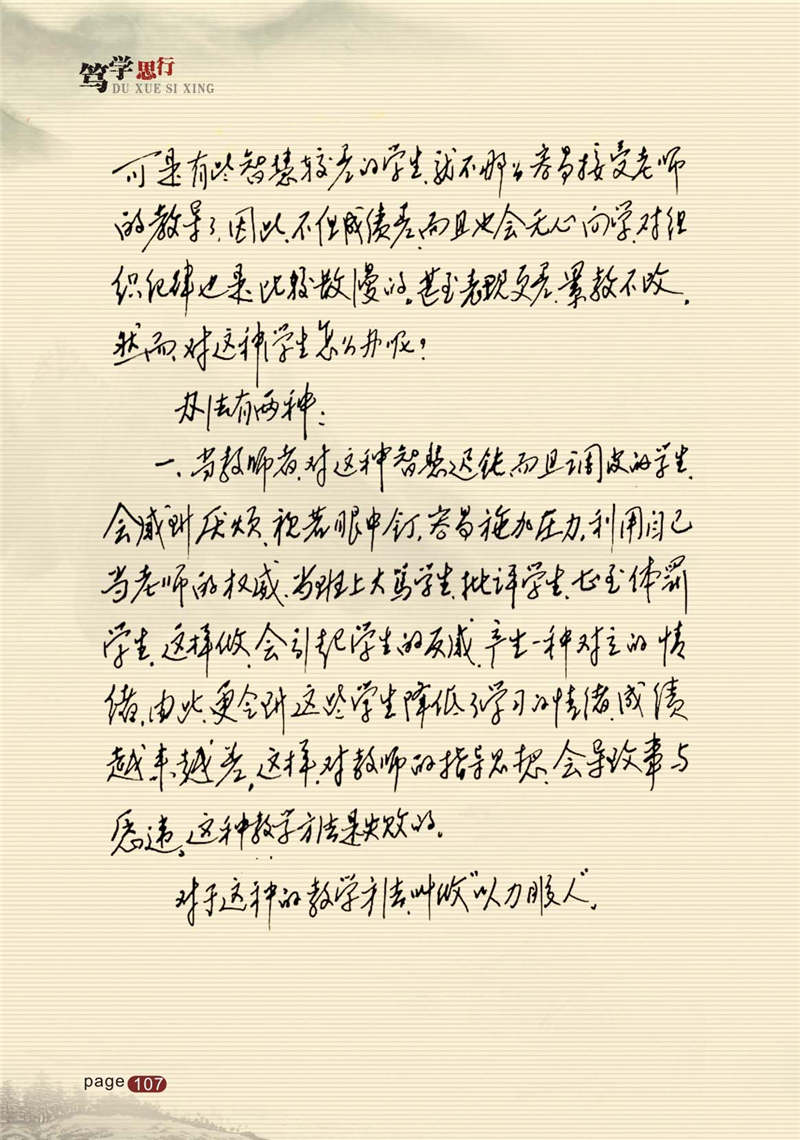 笃学思行
DU XUE SI XING
可是有些智慧较差的学生,就不那么容易接受老师
的教导了,因此,不但成绩差,而且也会无心向学,对组
织纪律也是比较散慢的。甚至表现更差,累教不改。
然而,对这种学生怎么办呢?
办法有两种:
一、当教师者,对这种智慧迟钝,而且调皮的学生,
会感到厌烦,视若眼中钉,容易施加压力,利用自己
当老师的权威,当班上大骂学生,批评学生,甚至体罚
学生。这样做,会引起学生的反感,产生一种对立的情
绪,由此,更会到这些学生降低了学习的情绪,成绩
越来越差。这样,对教师的指导思想,会导致事与
愿违。这种教学方法是失败的。
对于这种的教学方法,叫做"以力服人"。
page 107